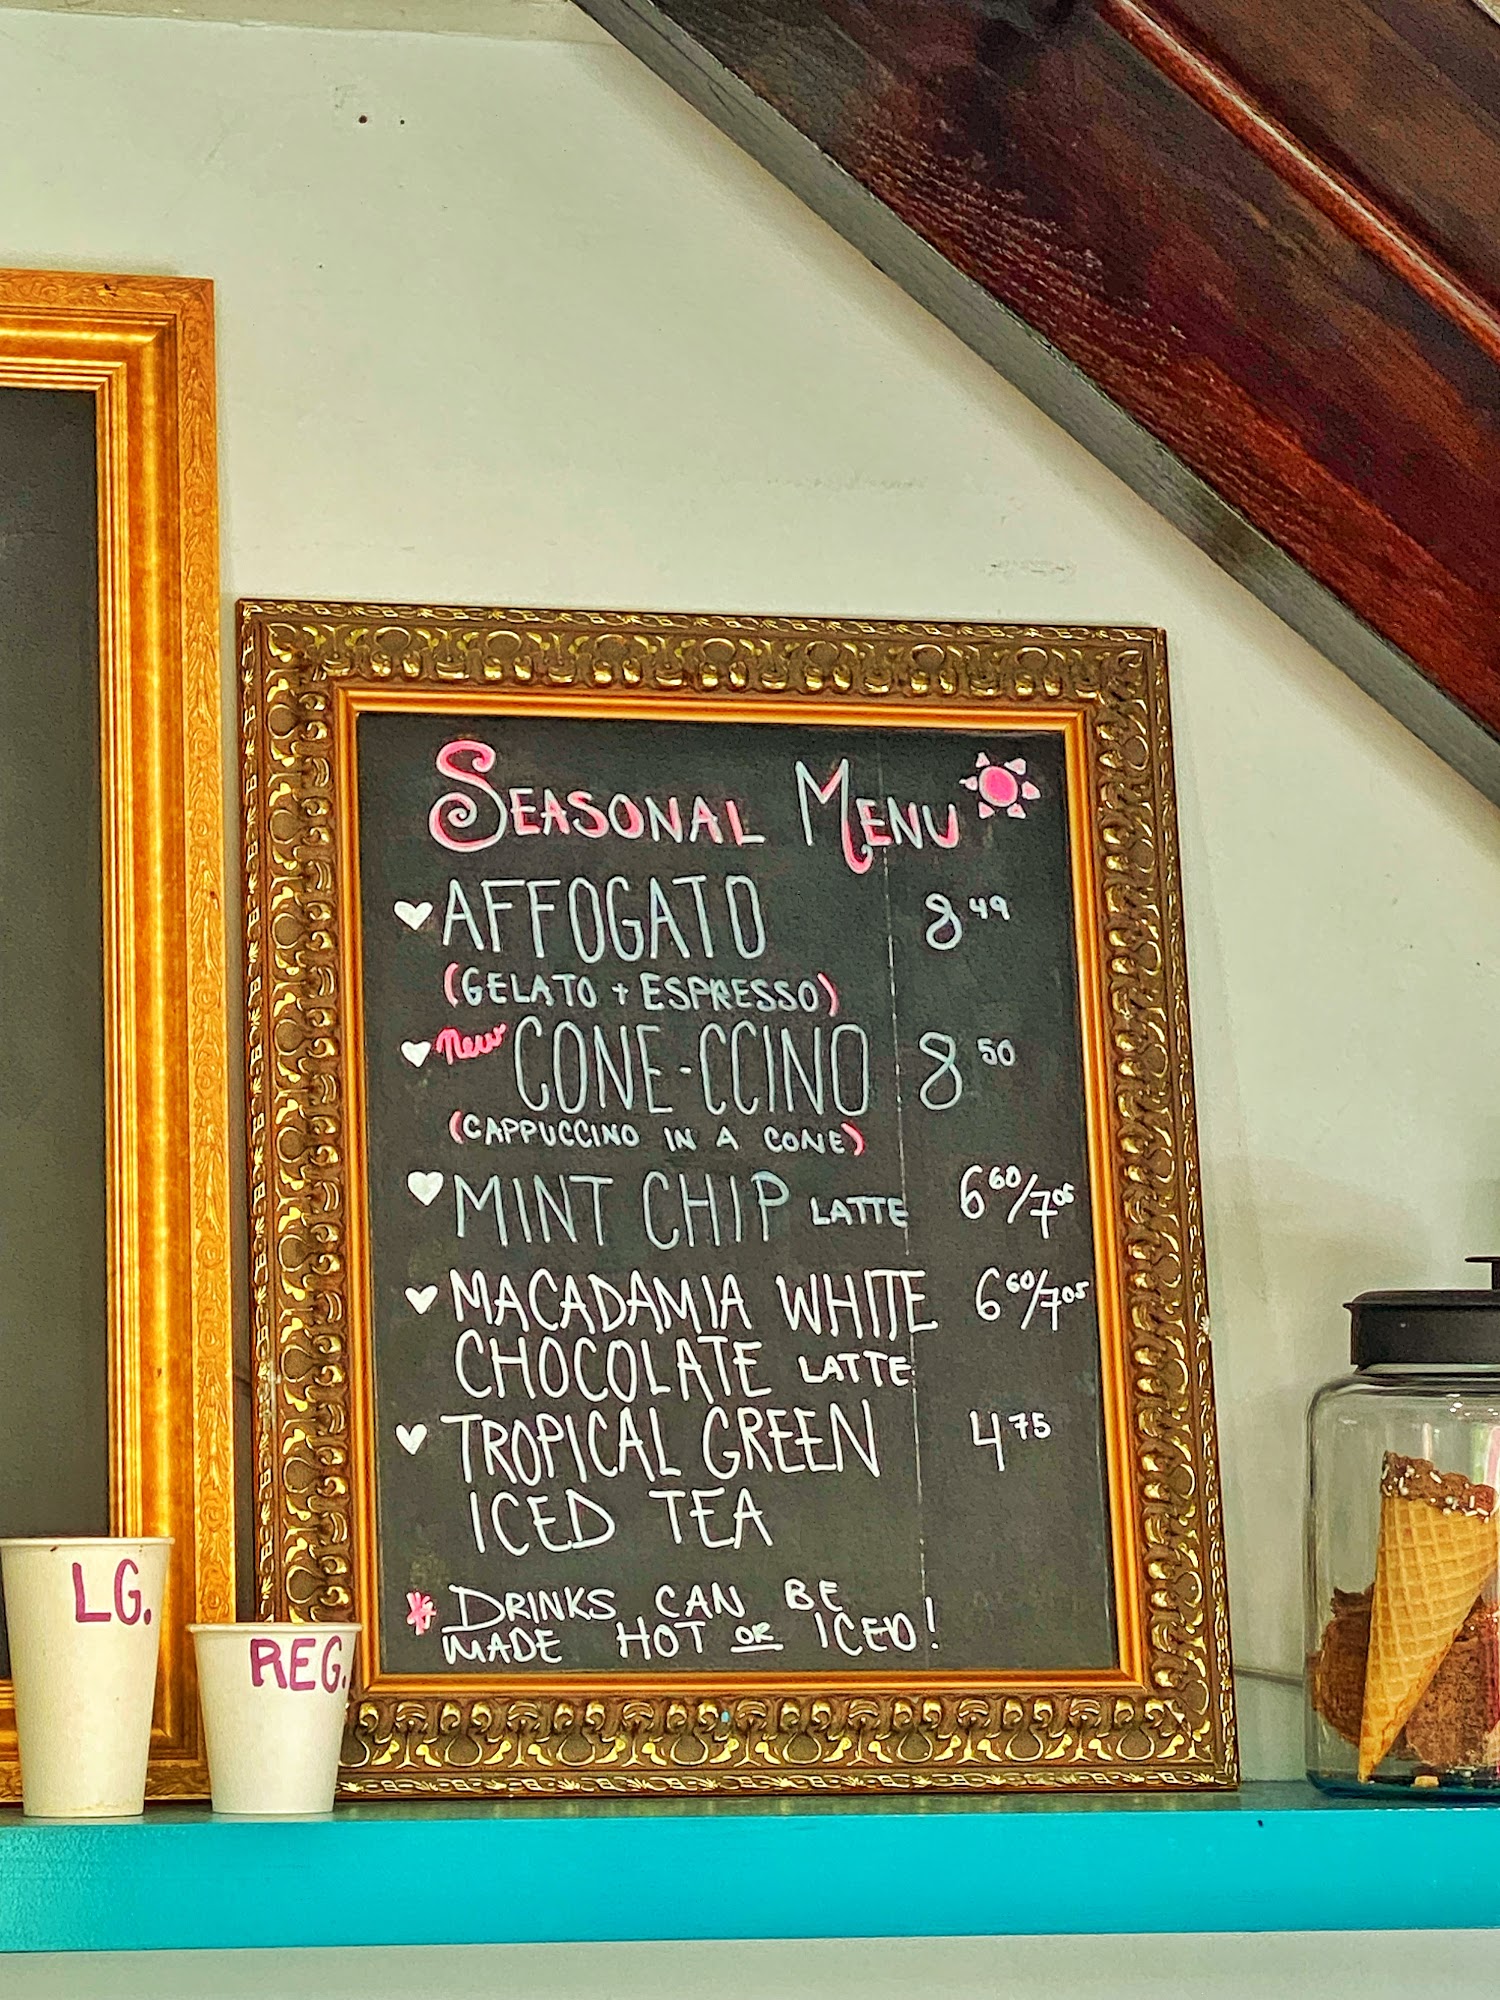 SEASONAL MENU
AFFOGATO 8 49
(GELATO + ESPRESSO)
new CONE-CCINO 8 50
(CAPPUCCINO IN A CONE)
MINT CHIP LATTE 6 60/7 05
MACADAMIA WHITE 6 60/7 05
CHOCOLATE LATTE
TROPICAL GREEN 4 75
ICED TEA
* DRINKS CAN BE
MADE HOT OR ICED!
LG.
REG.